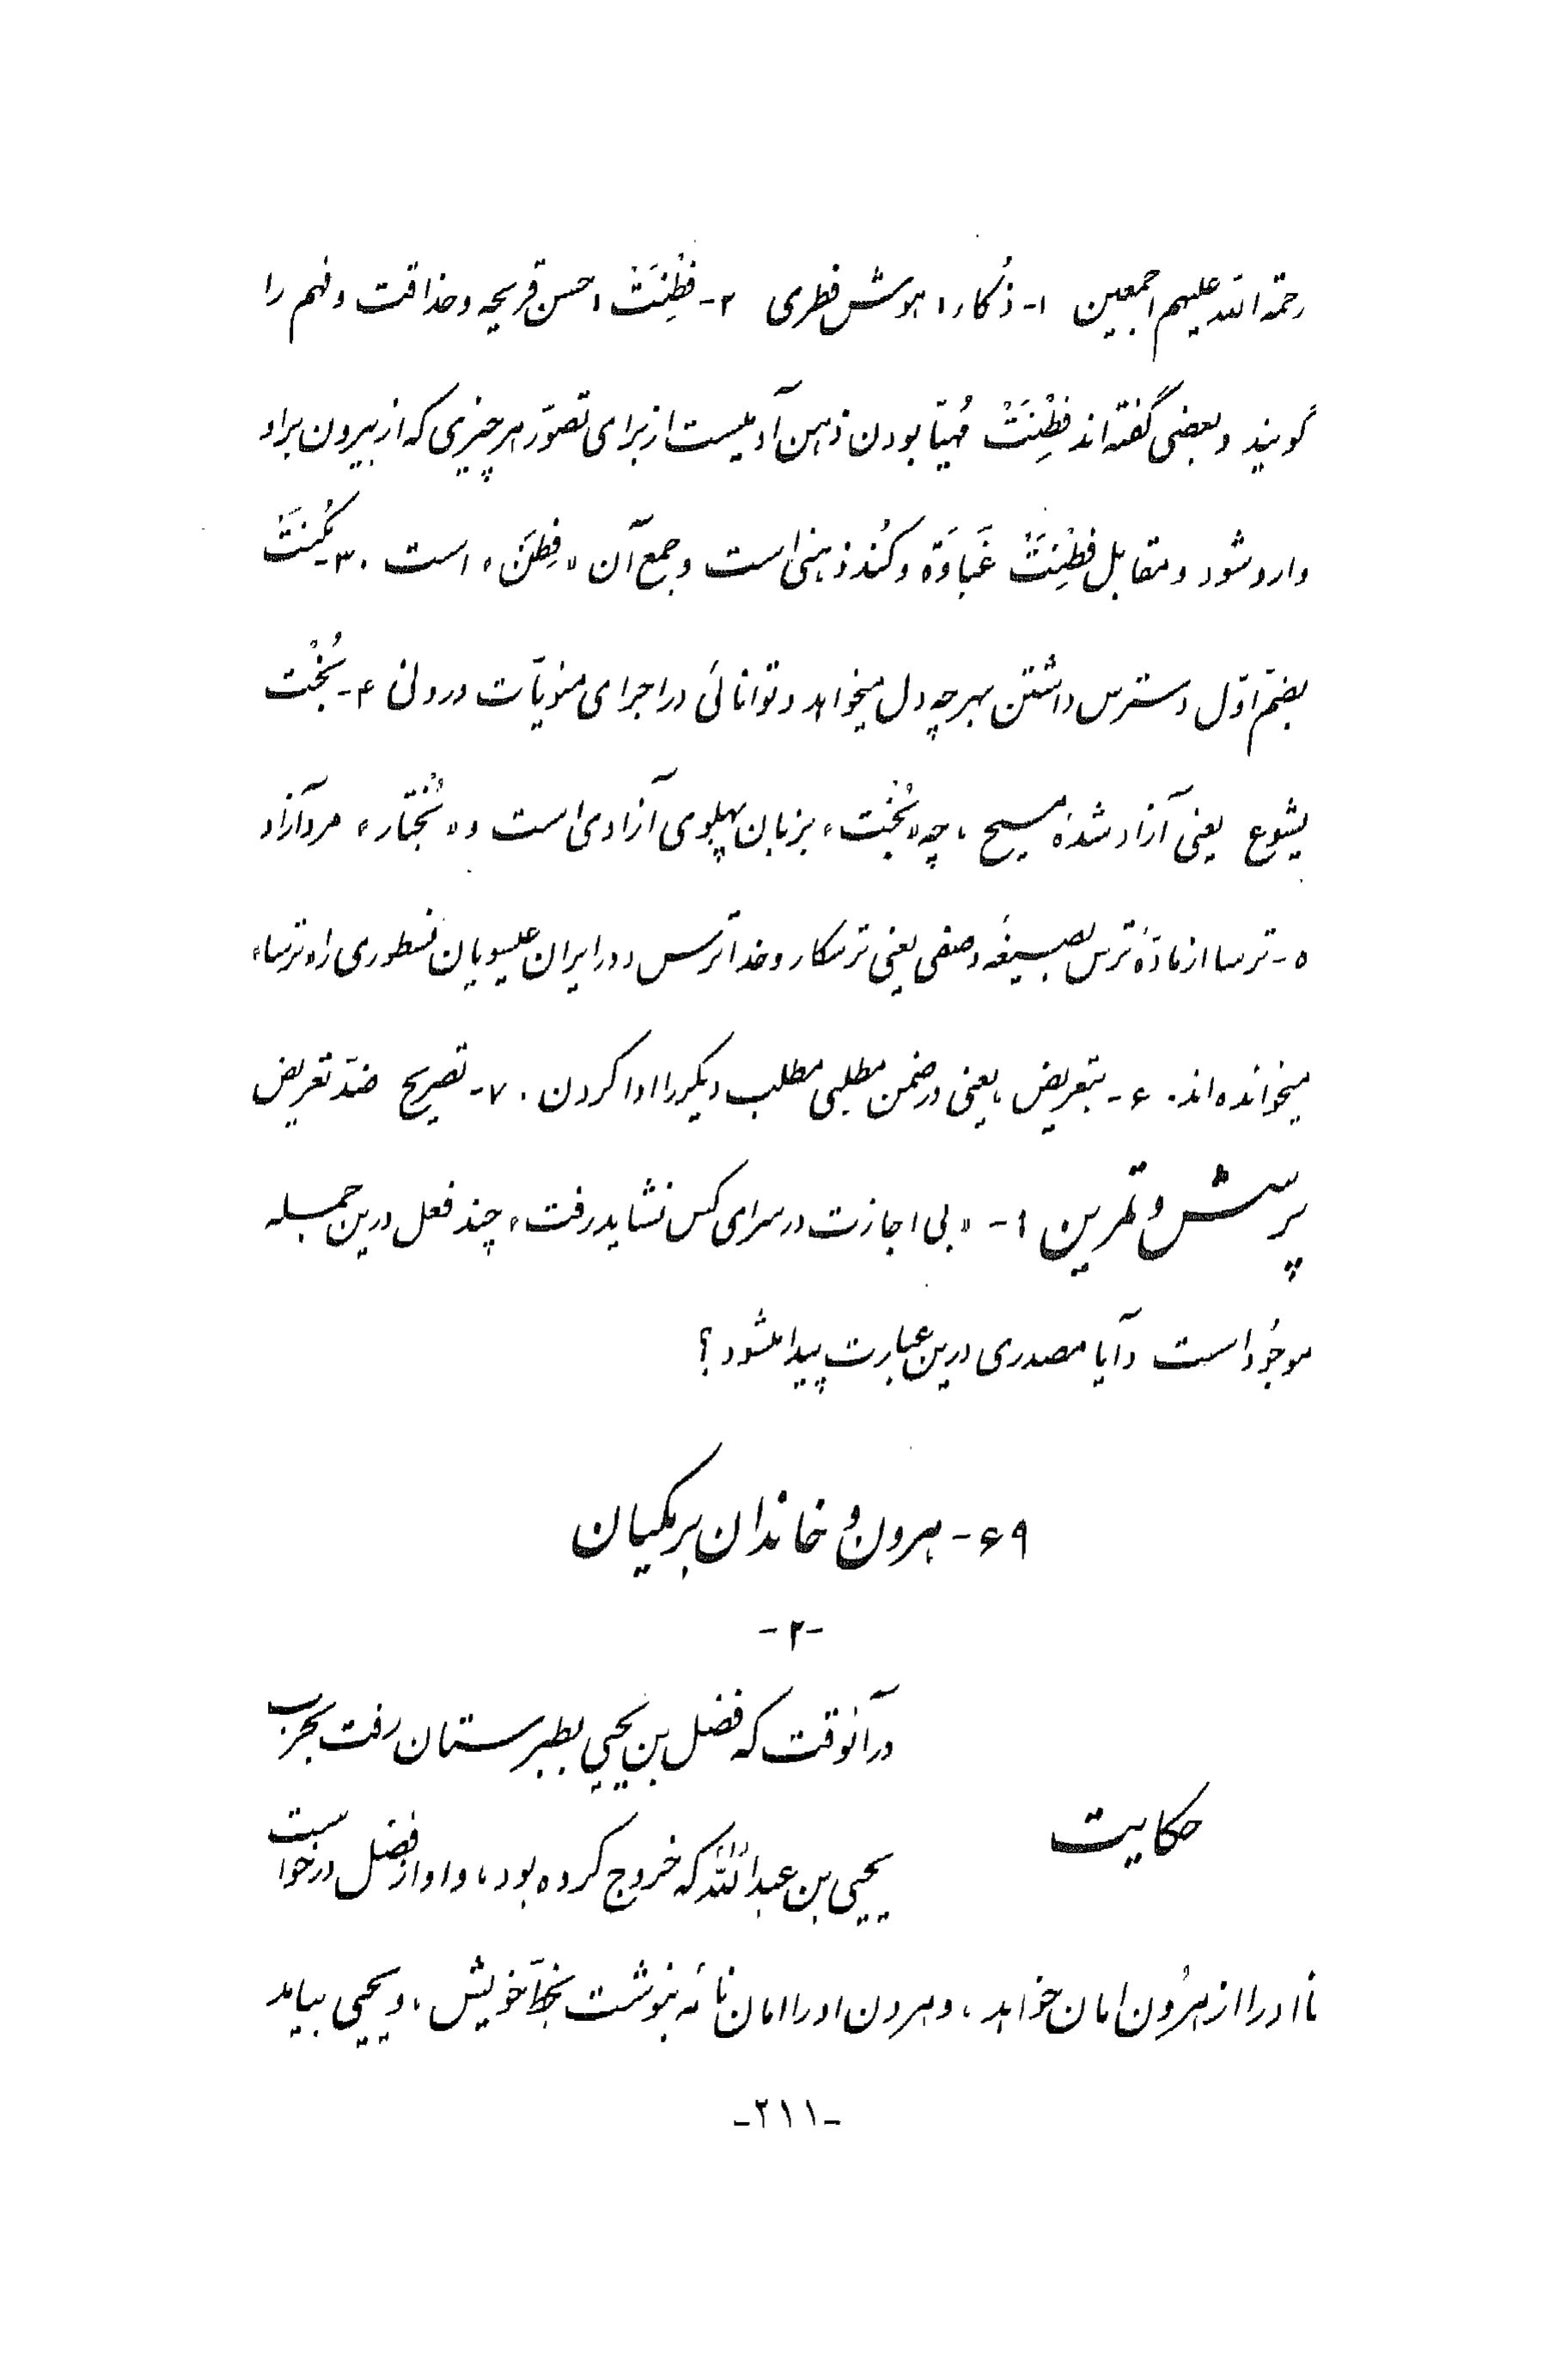 رحمة الله علیهم اجمعین ۱- ذُکاء، هوش فطری ۲- فِطْنَتْ، حسن قریحه و حذاقت و فهم را
گویند و بعضی گفته‌اند فِطْنَتْ مُهیّا بودن ذهن آدمیست از برای تصوّر هر چیزی که از بیرون بر او
وارد شود و مقابل فِطْنَتْ غَباوَة و کُند ذهنی است و جمع آن «فِطَن» است. ۳- مُکنَتْ
بضمّ اوّل دسترس داشتن بهر چه دل میخواهد و توانائی در اجرای منویّات درونی ۴- بُخْت
یشوع یعنی آزاد شدهٔ مسیح، چه «بُخْت» بزبان پهلوی آزادی است و «بُخْتار» مرد آزاد
۵- ترسا از مادّهٔ ترس بصیغهٔ وصفی یعنی ترسکار و خداترس و در ایران عیسویان نسطوری را «ترسا»
میخوانده‌اند. ۶- بتعریض، یعنی در ضمن مطلبی مطلب دیگر را ادا کردن. ۷- تصریح ضدّ تعریض
پرسش و تمرین ۱- «بی اجازت در سرای کس نشاید رفت» چند فعل درین جمله
موجُود است و آیا مصدری درین عبارت پیدا میشود؟
۶۹- هرون و خاندان برمکیان
-۲-
در آنوقت که فضل بن یحیی بطبرستان رفت بحرب
حکایت
یحیی بن عبدالله که خروج کرده بود، و او از فضل درخواست
تا او را از هرُون امان خواهد، و هرون او را امان نامه بنوشت بخطّ خویش، و یحیی بیامد
-۲۱۱-